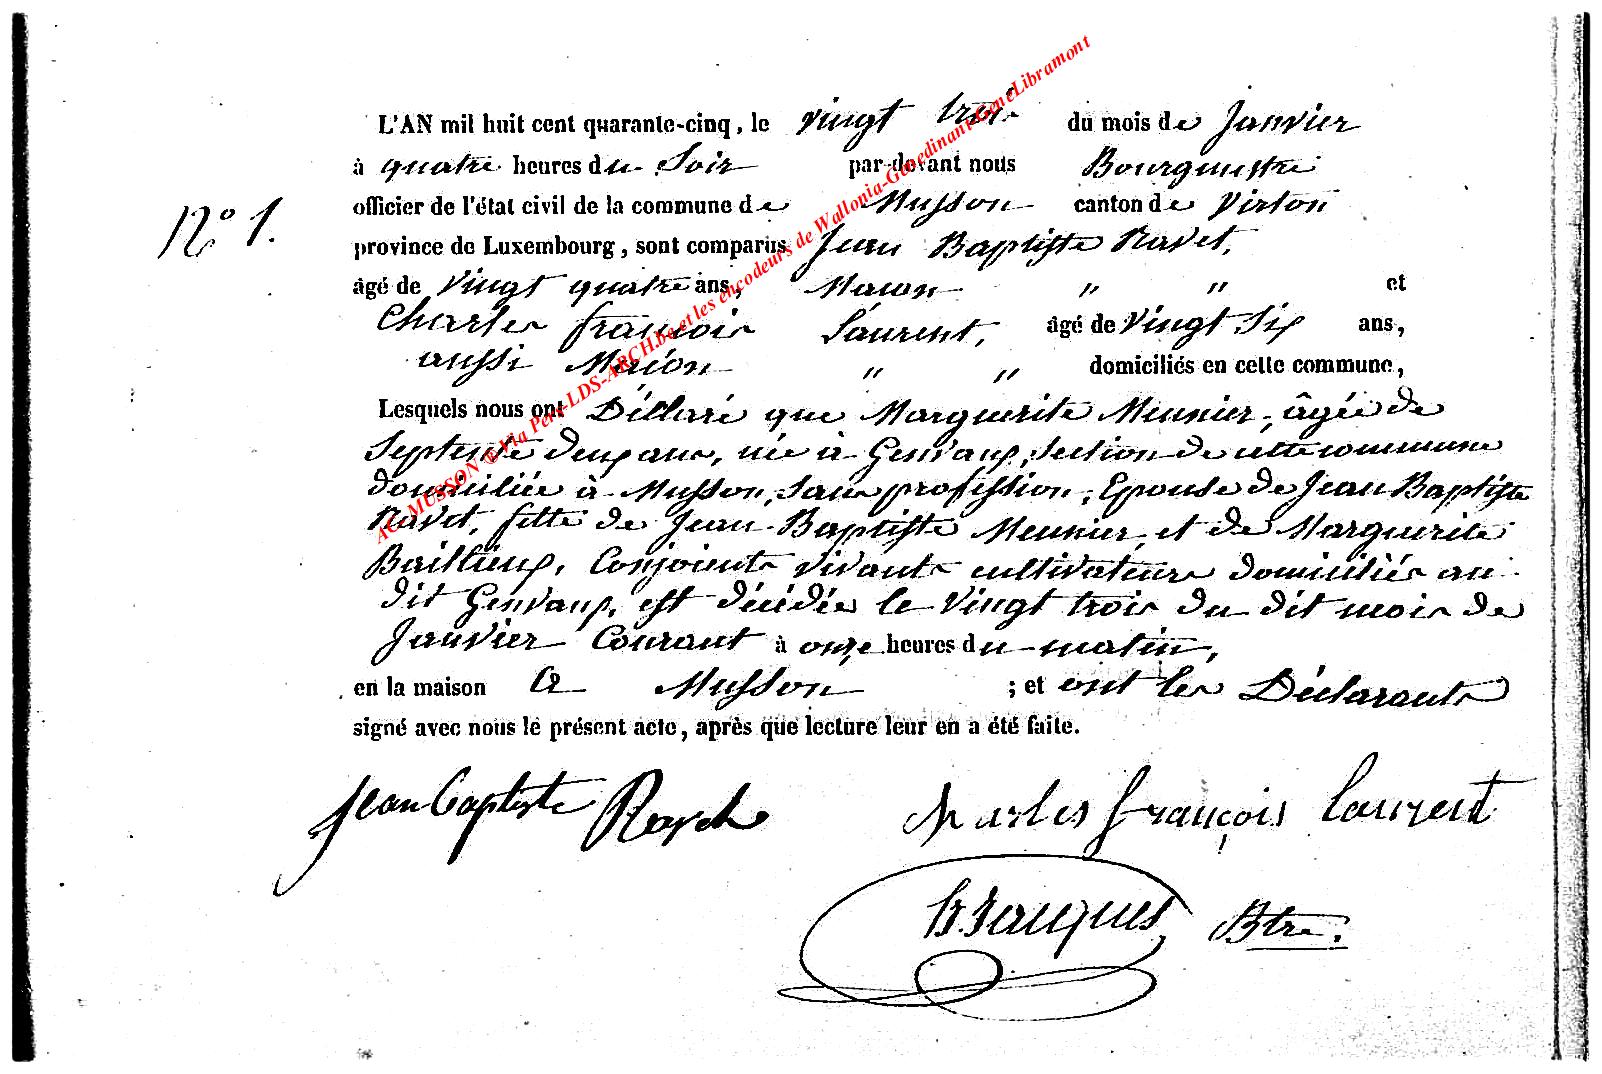 L'AN mil huit cent quarante-cinq, le vingt trois du mois de Janvier
à quatre heures du Soir par-devant nous Bourgmestre
N° 1.
officier de l'état civil de la commune de Musson canton de Virton
province de Luxembourg, sont comparus Jean Baptiste Navet,
âgé de vingt quatre ans, Maçon " " et
Charles françois Laurent, âgé de Vingt Six ans,
aussi Maçon " " domiciliés en cette commune,
Lesquels nous ont Déclaré que Marguerite Meunier, âgée de
Septente deux ans, née à Gennaux, section de cette commune
domiciliée à Musson, Sans profession, Epouse de Jean Baptiste
Navet, fille de Jean Baptiste Meunier, et de Marguerite
Baillieux, Conjoients vivants cultivateurs domiciliés au
dit Gennaux, est décédée le Vingt trois du dit mois de
Janvier Courant à onze heures du matin,
en la maison à Musson ; et ont les Déclarants
signé avec nous le présent acte, après que lecture leur en a été faite.
Jean Baptiste charles françois laurent
Jacques Btre.
AC-MUSSON @ Via Pers-LDS-ARCH.be et les encodeurs de Wallonia-Genedinant-GeneLibramont